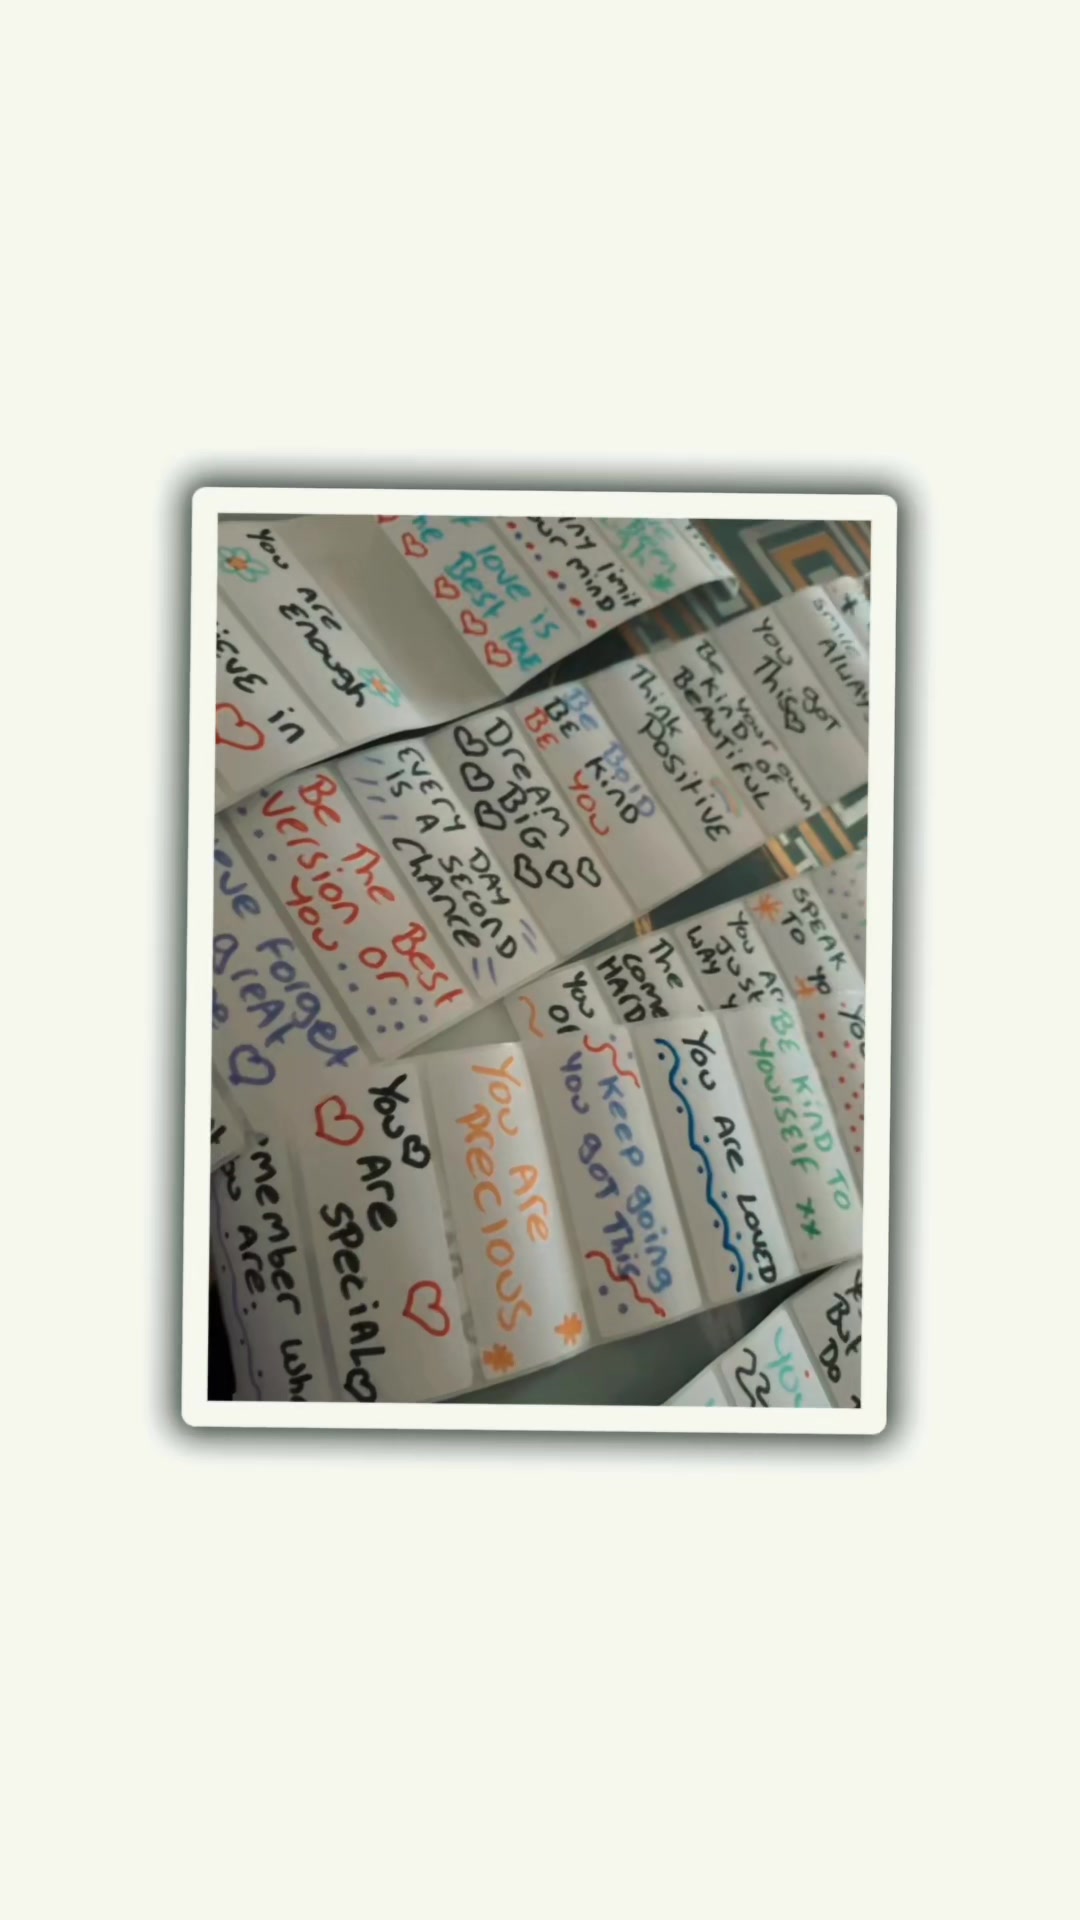 You ARE
Enough
in
love is
Best love
limit
minD
smile
ALWAY
You got
This
BE Kind
your own
of
BEAUTIFUL
Think
Positive
Be Bold
BE KinD
BE You
DreAM
BiG
EVERY DAY
is A SECOND
ChAnce
BE The Best
Version of
You
forget
greAt
SPEAK
TO
You Ar
JUST
WAY
The
COME
HARD
You
BE KinD TO
YOURSELF xx
You Are LOVED
KEEP going
You goT This
You Are
PRECIOUS
You
Are
SPeciAL
Are:
But
DO